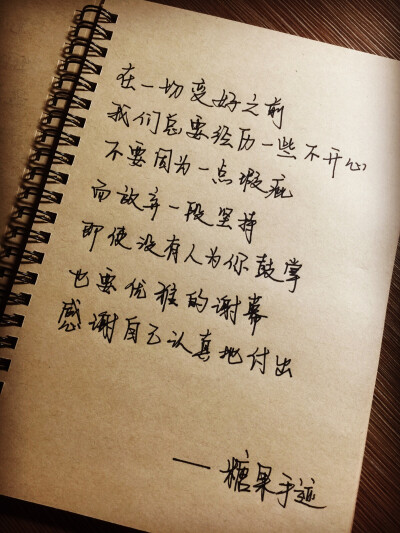 在一切变好之前
我们总要经历一些不开心
不要因为一点瑕疵
而放弃一段坚持
即使没有人为你鼓掌
也要优雅的谢幕
感谢自己认真地付出
——糖果手迹